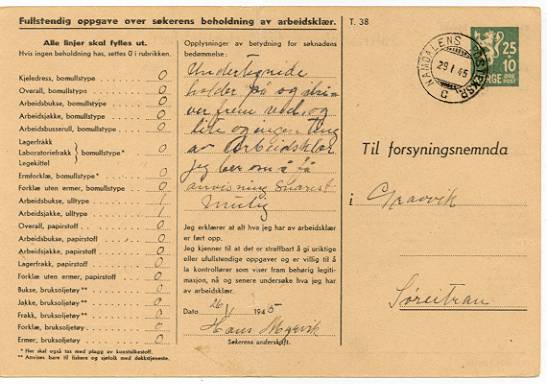 Fullstendig oppgave over søkerens beholdning av arbeidsklær.
Alle linjer skal fylles ut.
Hvis ingen beholdning has, settes 0 i rubrikken.
Kjeledress, bomullstype 0
Overall, bomullstype 0
Arbeidsbukse, bomullstype 0
Arbeidsjakke, bomullstype 0
Arbeidsbusserull, bomullstype 0
Lagerfrakk
Laboratoriefrakk bomullstype* 0
Legekittel
Ermforklæ, bomullstype* 0
Forklæ uten ermer, bomullstype 0
Arbeidsbukse, ulltype 1
Arbeidsjakke, ulltype 1
Overall, papirstoff 0
Arbeidsbukse, papirstoff 0
Arbeidsjakke, papirstoff 0
Lagerfrakk, papirstoff 0
Forklæ uten ermer, papirstoff 0
Bukse, bruksoljetøy** 0
Jakke, bruksoljetøy** 0
Frakk, bruksoljetøy** 0
Forklæ, bruksoljetøy 0
Ermer, bruksoljetøy 0
* Her skal også tas med plagg av kunstsilkestoff.
** Anvises bare til fiskere og sjøfolk med dekktjeneste.
Opplysninger av betydning for søknadens
bedømmelse:
Undertegnede
holder på og dri
ver frem ved, og
lite og ingen ting
av Arbeidsklær
jeg ber om å få
anvisning snarest
mulig
Jeg erklærer at alt hva jeg har av arbeidsklær
er ført opp.
Jeg kjenner til at det er straffbart å gi uriktige
eller ufullstendige oppgaver og er villig til å
la kontrollører som viser fram behørig legiti-
masjon, nå og senere undersøke hva jeg har
av arbeidsklær.
Dato 26/1 1945
Hans
Søkerens underskrift.
T. 38
NAMDALENS
29 1 45
C
25
10
ØRE
NORGE
Til forsyningsnemnda
i Gravvik